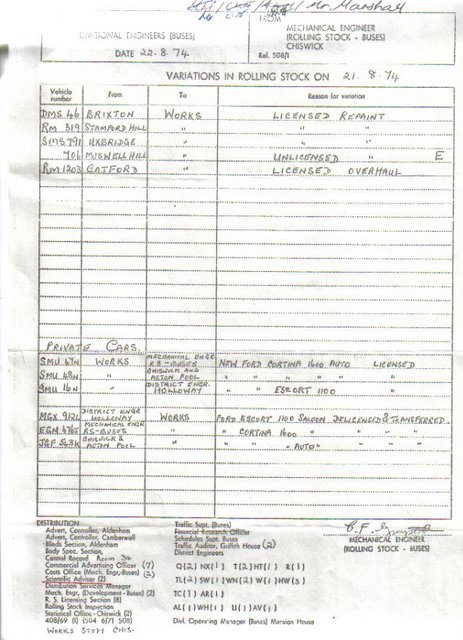 Mr. Marshall
DIVISIONAL ENGINEERS (BUSES)
DATE 22.8.74
FROM
MECHANICAL ENGINEER
(ROLLING STOCK - BUSES)
CHISWICK
Ref. 508/1
VARIATIONS IN ROLLING STOCK ON 21.8.74
Vehicle number From To Reason for variation
DMS 46 BRIXTON WORKS LICENSED REPAINT
RM 319 STAMFORD HILL " " "
SMS 791 UXBRIDGE " " "
706 MUSWELLHILL " UNLICENSED " E
RM 1203 CATFORD " LICENSED OVERHAUL
PRIVATE CARS.
SMU 47N WORKS MECHANICAL ENGR RS-BUSES NEW FORD CORTINA 1600 AUTO LICENSED
SMU 48N " CHISWICK AND ACTON POOL " " " " " "
SMU 16N " DISTRICT ENGR. HOLLOWAY " " ESCORT 1100 "
MGX 912L DISTRICT ENGR HOLLOWAY WORKS FORD ESCORT 1100 SALOON DELICENSED & TRANSFERRED
MECHANICAL ENGR RS-BUSES " " CORTINA 1600 " " " "
CHISWICK & ACTON POOL " " " " "AUTO" " " "
DISTRIBUTION
Advert, Controller, Aldenham
Advert, Controller, Camberwell
Blinds Section, Aldenham
Body Spec. Section,
Central Record Room
Commercial Advertising Officer (7)
Costs Office (Mech. Engr.-Buses) (2)
Scientific Adviser (2)
Distribution Services Manager
Mech. Engr, (Development-Buses) (2)
R. S. Licensing Section (8)
Rolling Stock Inspection
Statistical Office - Chiswick (2)
408/69 (1) (504 6/71 508)
WORKS STUDY CHIS.
Traffic Supt. (Buses)
Financial Research Officer
Schedules Supt. Buses
Traffic Auditor, Griffith House (2)
District Engineers
Q(2) NX(1) T(2) HT(1) R(1)
TL(2) SW(1) WN(2) W(1) HW(5)
TC(1) AR(1)
AL(1) WH(1) U(1) AV(1)
Divl. Operating Manager (Buses) Mansion House
MECHANICAL ENGINEER
(ROLLING STOCK - BUSES)